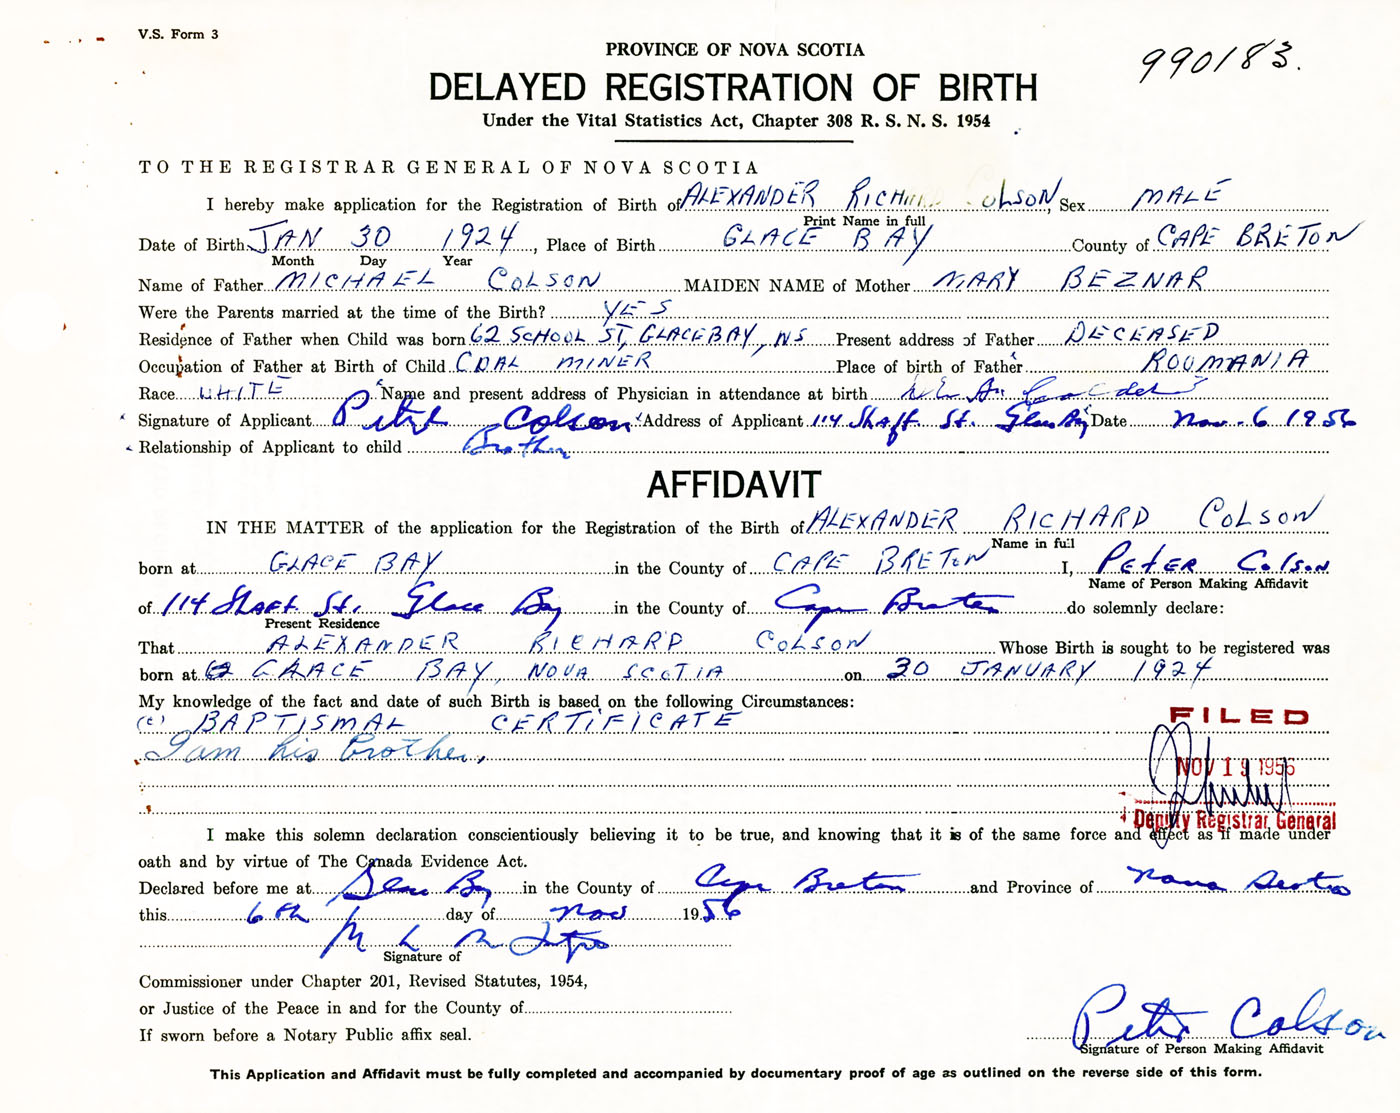 V.S. Form 3
990183.
PROVINCE OF NOVA SCOTIA
DELAYED REGISTRATION OF BIRTH
Under the Vital Statistics Act, Chapter 308 R. S. N. S. 1954
TO THE REGISTRAR GENERAL OF NOVA SCOTIA
I hereby make application for the Registration of Birth of ALEXANDER RICHARD COLSON, Sex MALE
Print Name in full
Date of Birth JAN 30 1924, Place of Birth GLACE BAY County of CAPE BRETON
Month Day Year
Name of Father MICHAEL COLSON MAIDEN NAME of Mother MARY BEZNAR
Were the Parents married at the time of the Birth? YES
Residence of Father when Child was born 62 SCHOOL ST, GLACE BAY, NS Present address of Father DECEASED
Occupation of Father at Birth of Child COAL MINER Place of birth of Father ROUMANIA
Race WHITE Name and present address of Physician in attendance at birth
Signature of Applicant Peter Colson Address of Applicant 114 Shaft St. Glace Bay Date Nov. 6 1956
Relationship of Applicant to child Brother
AFFIDAVIT
IN THE MATTER of the application for the Registration of the Birth of ALEXANDER RICHARD COLSON
Name in full
born at GLACE BAY in the County of CAPE BRETON I, PETER Colson
Name of Person Making Affidavit
of 114 Shaft St. Glace Bay in the County of Cape Breton do solemnly declare:
Present Residence
That ALEXANDER RICHARD COLSON Whose Birth is sought to be registered was
born at GLACE BAY, NOVA SCOTIA on 30 JANUARY 1924
My knowledge of the fact and date of such Birth is based on the following Circumstances:
(c) BAPTISMAL CERTIFICATE
I am his brother,
FILED
NOV 19 1956
Deputy Registrar General
I make this solemn declaration conscientiously believing it to be true, and knowing that it is of the same force and effect as if made under
oath and by virtue of The Canada Evidence Act.
Declared before me at Glace Bay in the County of Cape Breton and Province of Nova Scotia
this 6th day of Nov 1956
Signature of
Commissioner under Chapter 201, Revised Statutes, 1954,
or Justice of the Peace in and for the County of
If sworn before a Notary Public affix seal.
Peter Colson
Signature of Person Making Affidavit
This Application and Affidavit must be fully completed and accompanied by documentary proof of age as outlined on the reverse side of this form.